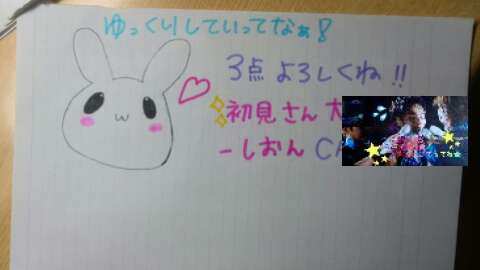 ゆっくりしていってなぁ!
3点よろしくね!!
初見さん大
-しおんCA
してってね☆